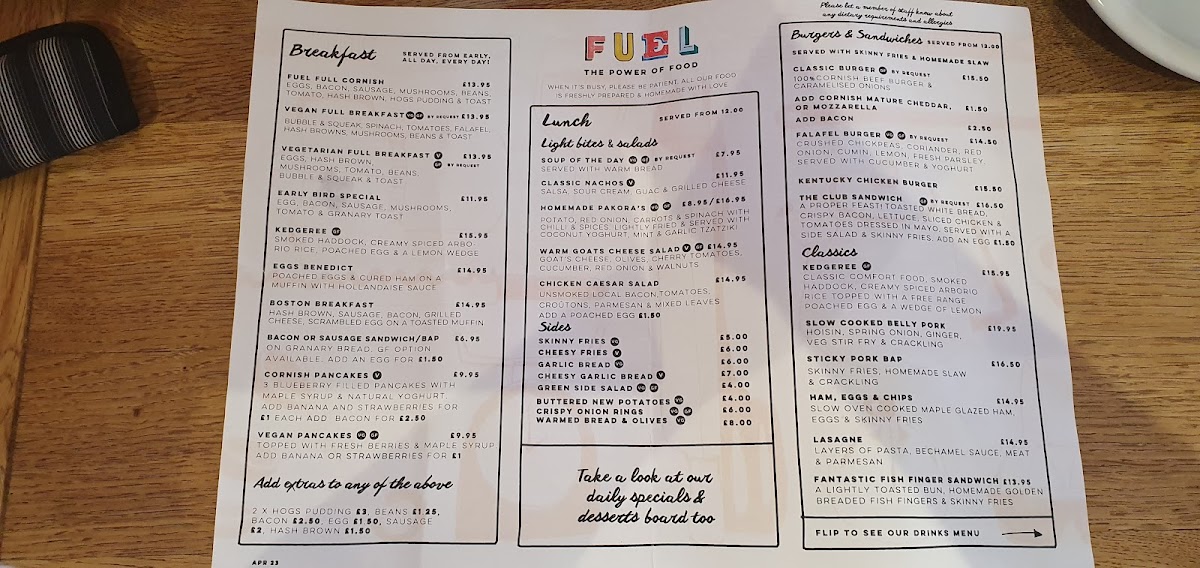 Please let a member of staff know about
any dietary requirements and allergies
FUEL
THE POWER OF FOOD
WHEN IT'S BUSY, PLEASE BE PATIENT, ALL OUR FOOD
IS FRESHLY PREPARED & HOMEMADE WITH LOVE
Breakfast
SERVED FROM EARLY,
ALL DAY, EVERY DAY!
FUEL FULL CORNISH £13.95
EGGS, BACON, SAUSAGE, MUSHROOMS, BEANS,
TOMATO, HASH BROWN, HOGS PUDDING & TOAST
VEGAN FULL BREAKFAST VG GF BY REQUEST £13.95
BUBBLE & SQUEAK, SPINACH, TOMATOES, FALAFEL,
HASH BROWNS, MUSHROOMS, BEANS & TOAST
VEGETARIAN FULL BREAKFAST V £13.95
EGGS, HASH BROWN, GF BY REQUEST
MUSHROOMS, TOMATO, BEANS,
BUBBLE & SQUEAK & TOAST
EARLY BIRD SPECIAL £11.95
EGG, BACON, SAUSAGE, MUSHROOMS,
TOMATO & GRANARY TOAST
KEDGEREE GF £15.95
SMOKED HADDOCK, CREAMY SPICED ARBO-
RIO RICE, POACHED EGG & A LEMON WEDGE
EGGS BENEDICT £14.95
POACHED EGGS & CURED HAM ON A
MUFFIN WITH HOLLANDAISE SAUCE
BOSTON BREAKFAST £14.95
HASH BROWN, SAUSAGE, BACON, GRILLED
CHEESE, SCRAMBLED EGG ON A TOASTED MUFFIN
BACON OR SAUSAGE SANDWICH/BAP £6.95
ON GRANARY BREAD. GF OPTION
AVAILABLE. ADD AN EGG FOR £1.50
CORNISH PANCAKES V £9.95
3 BLUEBERRY FILLED PANCAKES WITH
MAPLE SYRUP & NATURAL YOGHURT.
ADD BANANA AND STRAWBERRIES FOR
£1 EACH ADD BACON FOR £2.50
VEGAN PANCAKES VG GF £9.95
TOPPED WITH FRESH BERRIES & MAPLE SYRUP
ADD BANANA OR STRAWBERRIES FOR £1
Add extras to any of the above
2 X HOGS PUDDING £3, BEANS £1.25,
BACON £2.50, EGG £1.50, SAUSAGE
£2, HASH BROWN £1.50
APR 23
Lunch
SERVED FROM 12.00
Light bites & salads
SOUP OF THE DAY VG GF BY REQUEST £7.95
SERVED WITH WARM BREAD
CLASSIC NACHOS V £11.95
SALSA, SOUR CREAM, GUAC & GRILLED CHEESE
HOMEMADE PAKORA'S VG GF £8.95/£16.95
POTATO, RED ONION, CARROTS & SPINACH WITH
CHILLI & SPICES. LIGHTLY FRIED & SERVED WITH
COCONUT YOGHURT, MINT & GARLIC TZATZIKI
WARM GOATS CHEESE SALAD V GF £14.95
GOAT'S CHEESE, OLIVES, CHERRY TOMATOES,
CUCUMBER, RED ONION & WALNUTS
CHICKEN CAESAR SALAD £14.95
UNSMOKED LOCAL BACON, TOMATOES,
CROUTONS, PARMESAN & MIXED LEAVES
ADD A POACHED EGG £1.50
Sides
SKINNY FRIES VG £5.00
CHEESY FRIES V £6.00
GARLIC BREAD VG £6.00
CHEESY GARLIC BREAD V £7.00
GREEN SIDE SALAD VG GF £4.00
BUTTERED NEW POTATOES VG £4.00
CRISPY ONION RINGS VG GF £6.00
WARMED BREAD & OLIVES VG £8.00
Take a look at our
daily specials &
desserts board too
Burgers & Sandwiches SERVED FROM 12.00
SERVED WITH SKINNY FRIES & HOMEMADE SLAW
CLASSIC BURGER GF BY REQUEST £15.50
100% CORNISH BEEF BURGER &
CARAMELISED ONIONS
ADD CORNISH MATURE CHEDDAR,
OR MOZZARELLA £1.50
ADD BACON £2.50
FALAFEL BURGER VG GF BY REQUEST £14.50
CRUSHED CHICKPEAS, CORIANDER, RED
ONION, CUMIN, LEMON, FRESH PARSLEY,
SERVED WITH CUCUMBER & YOGHURT
KENTUCKY CHICKEN BURGER £15.50
THE CLUB SANDWICH GF BY REQUEST £16.50
A PROPER FEAST! TOASTED WHITE BREAD,
CRISPY BACON, LETTUCE, SLICED CHICKEN &
TOMATOES DRESSED IN MAYO, SERVED WITH A
SIDE SALAD & SKINNY FRIES, ADD AN EGG £1.50
Classics
KEDGEREE GF £15.95
CLASSIC COMFORT FOOD, SMOKED
HADDOCK, CREAMY SPICED ARBORIO
RICE TOPPED WITH A FREE RANGE
POACHED EGG & A WEDGE OF LEMON
SLOW COOKED BELLY PORK £19.95
HOISIN, SPRING ONION, GINGER,
VEG STIR FRY & CRACKLING
STICKY PORK BAP £16.50
SKINNY FRIES, HOMEMADE SLAW
& CRACKLING
HAM, EGGS & CHIPS £14.95
SLOW OVEN COOKED MAPLE GLAZED HAM,
EGGS & SKINNY FRIES
LASAGNE £14.95
LAYERS OF PASTA, BECHAMEL SAUCE, MEAT
& PARMESAN
FANTASTIC FISH FINGER SANDWICH £13.95
A LIGHTLY TOASTED BUN, HOMEMADE GOLDEN
BREADED FISH FINGERS & SKINNY FRIES
FLIP TO SEE OUR DRINKS MENU